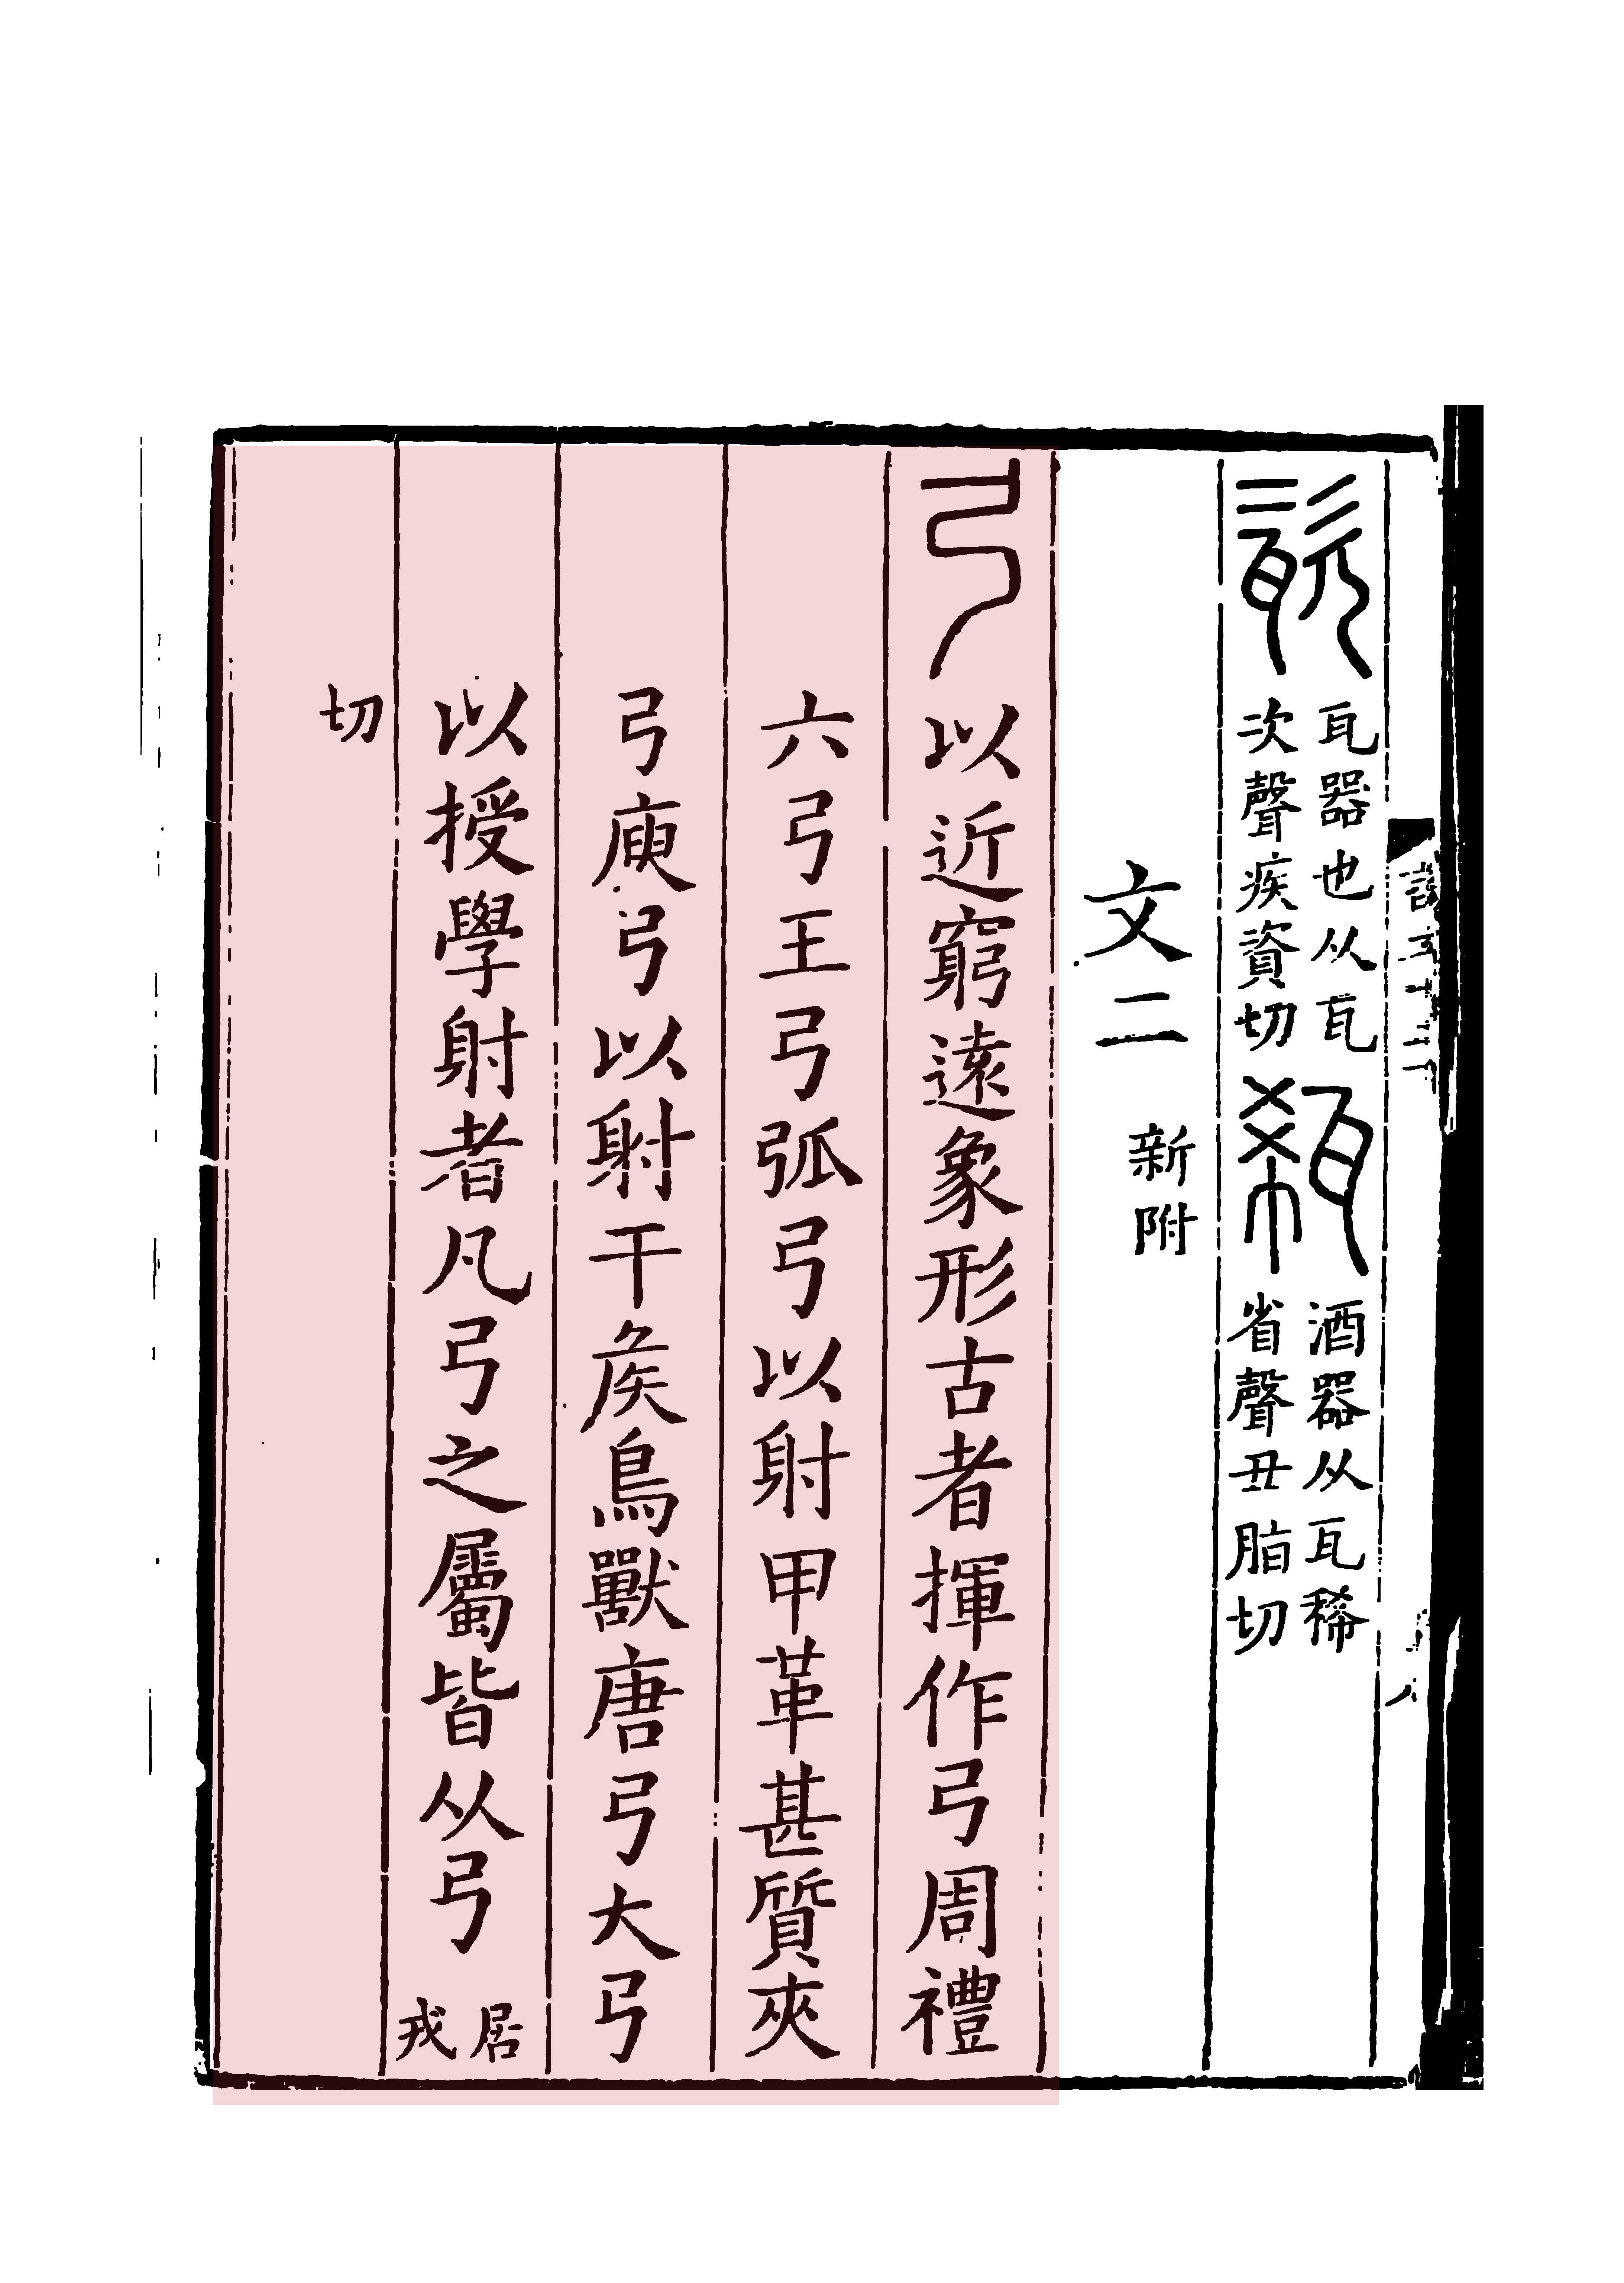 說文十二下
瓷瓦器也从瓦次聲疾資切瓻酒器从瓦稀省聲丑脂切
文二新附
弓以近窮遠象形古者揮作弓周禮
六弓王弓弧弓以射甲革甚質夾
弓庾弓以射干矦鳥獸唐弓大弓
以授學射者凡弓之屬皆从弓居戎
切